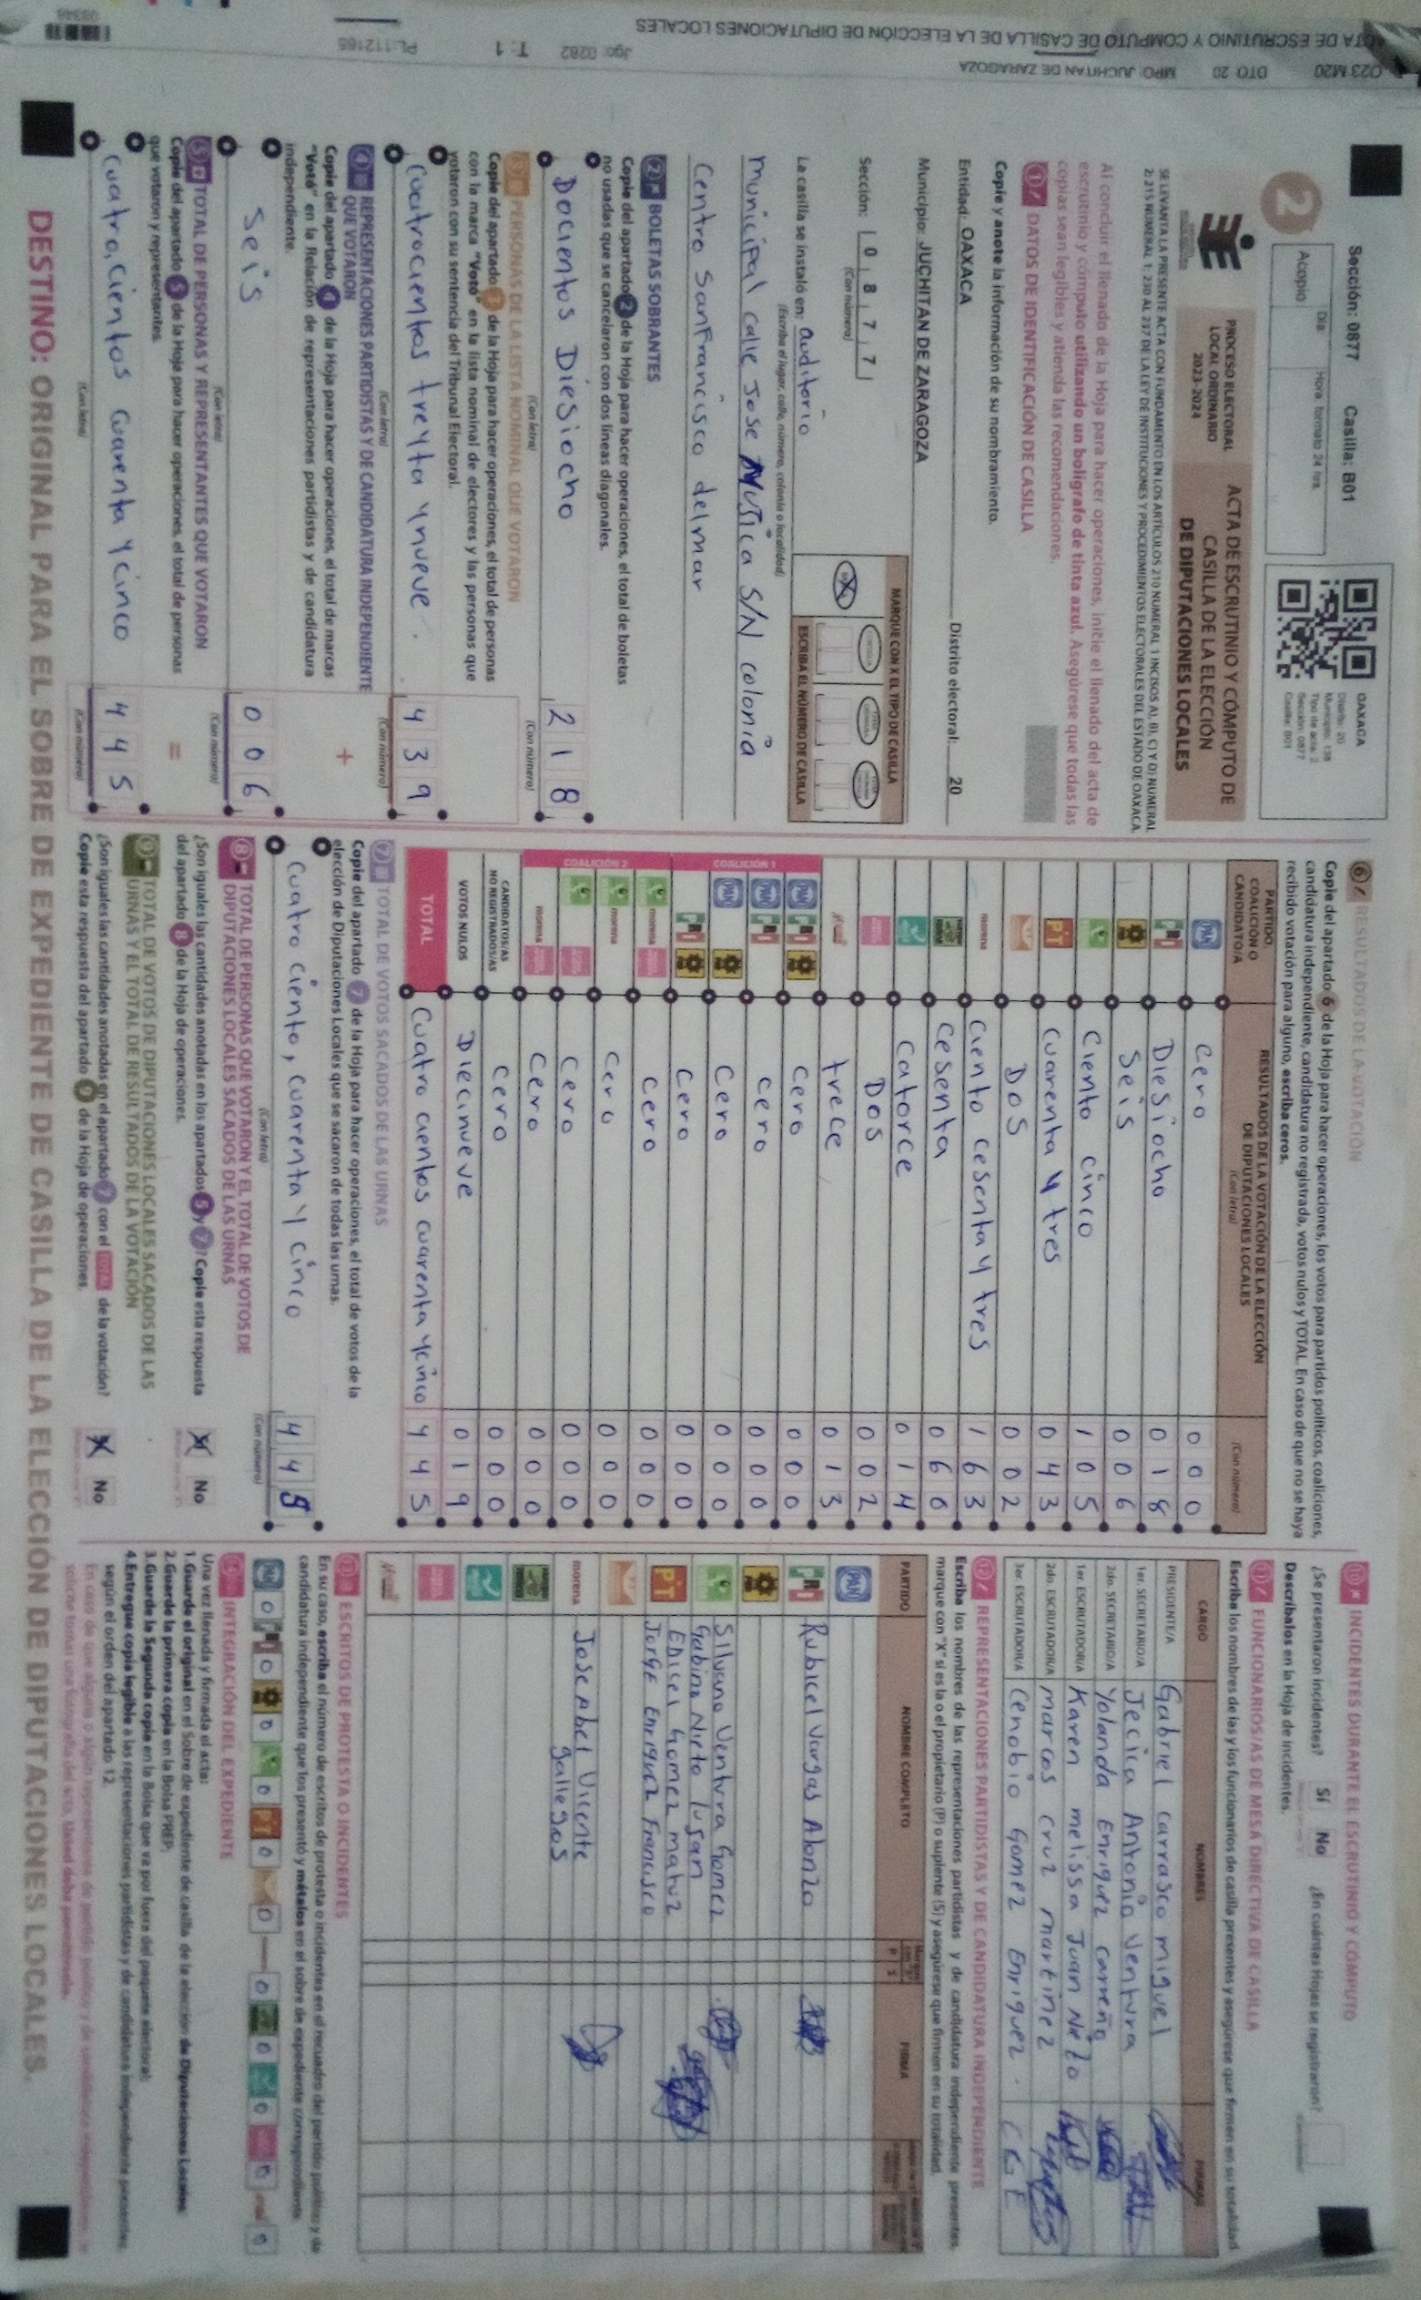 Sección: 0877 Casilla: B01
2
Día: Hora formato 24 hrs.
Acopio
OAXACA
Distrito: 20
Municipio: 138
Tipo de acta: 2
Sección: 0877
Casilla: B01
PROCESO ELECTORAL
LOCAL ORDINARIO
2023-2024
ACTA DE ESCRUTINIO Y CÓMPUTO DE
CASILLA DE LA ELECCIÓN
DE DIPUTACIONES LOCALES
SE LEVANTA LA PRESENTE ACTA CON FUNDAMENTO EN LOS ARTÍCULOS 210 NUMERAL 1 INCISOS A), B), C) Y D) NUMERAL
2; 215 NUMERAL 1; 230 AL 237 DE LA LEY DE INSTITUCIONES Y PROCEDIMIENTOS ELECTORALES DEL ESTADO DE OAXACA.
Al concluir el llenado de la Hoja para hacer operaciones, inicie el llenado del acta de
escrutinio y cómputo utilizando un bolígrafo de tinta azul. Asegúrese que todas las
copias sean legibles y atienda las recomendaciones.
1 DATOS DE IDENTIFICACIÓN DE CASILLA
Copie y anote la información de su nombramiento.
Entidad: OAXACA Distrito electoral: 20
Municipio: JUCHITAN DE ZARAGOZA
Sección: 0 8 7 7
(Con número)
MARQUE CON X EL TIPO DE CASILLA
ESCRIBA EL NÚMERO DE CASILLA
La casilla se instaló en: auditorio
(Escriba el lugar, calle, número, colonia o localidad)
municipal calle Jose Mujica S/N colonia
Centro San Francisco del mar
2 BOLETAS SOBRANTES
Copie del apartado 2 de la Hoja para hacer operaciones, el total de boletas
no usadas que se cancelaron con dos líneas diagonales.
Docientos Diesiocho 2 1 8
(Con letra) (Con número)
3 PERSONAS DE LA LISTA NOMINAL QUE VOTARON
Copie del apartado 3 de la Hoja para hacer operaciones, el total de personas
con la marca "Votó" en la lista nominal de electores y las personas que
votaron con su sentencia del Tribunal Electoral.
Cuatrocientos treyta y nueve. 4 3 9
(Con letra) (Con número)
4 REPRESENTACIONES PARTIDISTAS Y DE CANDIDATURA INDEPENDIENTE
QUE VOTARON
Copie del apartado 4 de la Hoja para hacer operaciones, el total de marcas
"Votó" en la Relación de representaciones partidistas y de candidatura
independiente.
+
Seis 0 0 6
(Con letra) (Con número)
5 TOTAL DE PERSONAS Y REPRESENTANTES QUE VOTARON
Copie del apartado 5 de la Hoja para hacer operaciones, el total de personas
que votaron y representantes.
=
Cuatro, Cientos Cuarenta y Cinco 4 4 5
(Con letra) (Con número)
6 RESULTADOS DE LA VOTACIÓN
Copie del apartado 6 de la Hoja para hacer operaciones, los votos para partidos políticos, coaliciones,
candidatura independiente, candidatura no registrada, votos nulos y TOTAL. En caso de que no se haya
recibido votación para alguno, escriba ceros.
PARTIDO, COALICIÓN O CANDIDATO/A
RESULTADOS DE LA VOTACIÓN DE LA ELECCIÓN
DE DIPUTACIONES LOCALES
(Con letra) (Con número)
PAN Cero 0 0 0
PRI Diesiocho 0 1 8
Seis 0 0 6
Ciento cinco 1 0 5
PT Cuarenta y tres 0 4 3
Dos 0 0 2
morena Ciento Cesenta y tres 1 6 3
Cesenta 0 6 0
Catorce 0 1 4
Dos 0 0 2
trece 0 1 3
COALICIÓN 1
PAN PRI Cero 0 0 0
PAN PRI cero 0 0 0
PAN Cero 0 0 0
PRI Cero 0 0 0
COALICIÓN 2
morena Cero 0 0 0
morena Cero 0 0 0
Cero 0 0 0
morena Cero 0 0 0
CANDIDATOS/AS NO REGISTRADOS/AS Cero 0 0 0
VOTOS NULOS Diecinueve 0 1 9
TOTAL Cuatro cientos cuarenta y cinco 4 4 5
7 TOTAL DE VOTOS SACADOS DE LAS URNAS
Copie del apartado 7 de la Hoja para hacer operaciones, el total de votos de la
elección de Diputaciones Locales que se sacaron de todas las urnas.
Cuatro ciento, Cuarenta y Cinco 4 4 5
(Con letra) (Con número)
8 TOTAL DE PERSONAS QUE VOTARON Y EL TOTAL DE VOTOS DE
DIPUTACIONES LOCALES SACADOS DE LAS URNAS
¿Son iguales las cantidades anotadas en los apartados 5 y 7? Copie esta respuesta
del apartado 8 de la Hoja de operaciones.
No
9 TOTAL DE VOTOS DE DIPUTACIONES LOCALES SACADOS DE LAS
URNAS Y EL TOTAL DE RESULTADOS DE LA VOTACIÓN
¿Son iguales las cantidades anotadas en el apartado 7 con el TOTAL de la votación?
Copie esta respuesta del apartado 9 de la Hoja de operaciones.
No
10 INCIDENTES DURANTE EL ESCRUTINIO Y CÓMPUTO
¿Se presentaron incidentes? Sí No ¿En cuántas Hojas se registraron?
Descríbalos en la Hoja de incidentes.
11 FUNCIONARIOS/AS DE MESA DIRECTIVA DE CASILLA
Escriba los nombres de las y los funcionarios de casilla presentes y asegúrese que firmen en su totalidad
CARGO NOMBRES FIRMAS
PRESIDENTE/A Gabriel Carrasco miguel
1er. SECRETARIO/A Jecica Antonio Ventura
2do. SECRETARIO/A Yolanda Enriquez Carreño
1er. ESCRUTADOR/A Karen melissa Juan Nieto
2do. ESCRUTADOR/A marcos cruz martinez
3er. ESCRUTADOR/A Cenobio Gomez Enriquez. CGE
12 REPRESENTACIONES PARTIDISTAS Y DE CANDIDATURA INDEPENDIENTE
Escriba los nombres de las representaciones partidistas y de candidatura independiente presentes,
marque con "X" si es la o el propietario (P) o suplente (S) y asegúrese que firmen en su totalidad.
PARTIDO NOMBRE COMPLETO FIRMA
PAN
PRI Rubicel Vargas Alonzo
Silvano Ventura Gomez
Gabino Nieto
PT Jorge Enriquez Francisco
morena Josephet Vicente
Gallegos
13 ESCRITOS DE PROTESTA O INCIDENTES
En su caso, escriba el número de escritos de protesta o incidentes en el recuadro del partido político y de
candidatura independiente que los presentó y métalos en el sobre de expediente correspondiente.
PAN 0 PRI 0 0 0 PT 0 0 0 0 0 0 0
14 INTEGRACIÓN DEL EXPEDIENTE
Una vez llenada y firmada el acta:
1.Guarde el original en el Sobre de expediente de casilla de la elección de Diputaciones Locales;
2.Guarde la primera copia en la Bolsa PREP;
3.Guarde la Segunda copia en la Bolsa que va por fuera del paquete electoral;
4.Entregue copia legible a las representaciones partidistas y de candidatura independiente presentes,
según el orden del apartado 12.
DESTINO: ORIGINAL PARA EL SOBRE DE EXPEDIENTE DE CASILLA DE LA ELECCIÓN DE DIPUTACIONES LOCALES.
O23 M20 DTO 20 MPO: JUCHITAN DE ZARAGOZA
ACTA DE ESCRUTINIO Y COMPUTO DE CASILLA DE LA ELECCIÓN DE DIPUTACIONES LOCALES
Jgo: 0282 T: 1 PL:112165